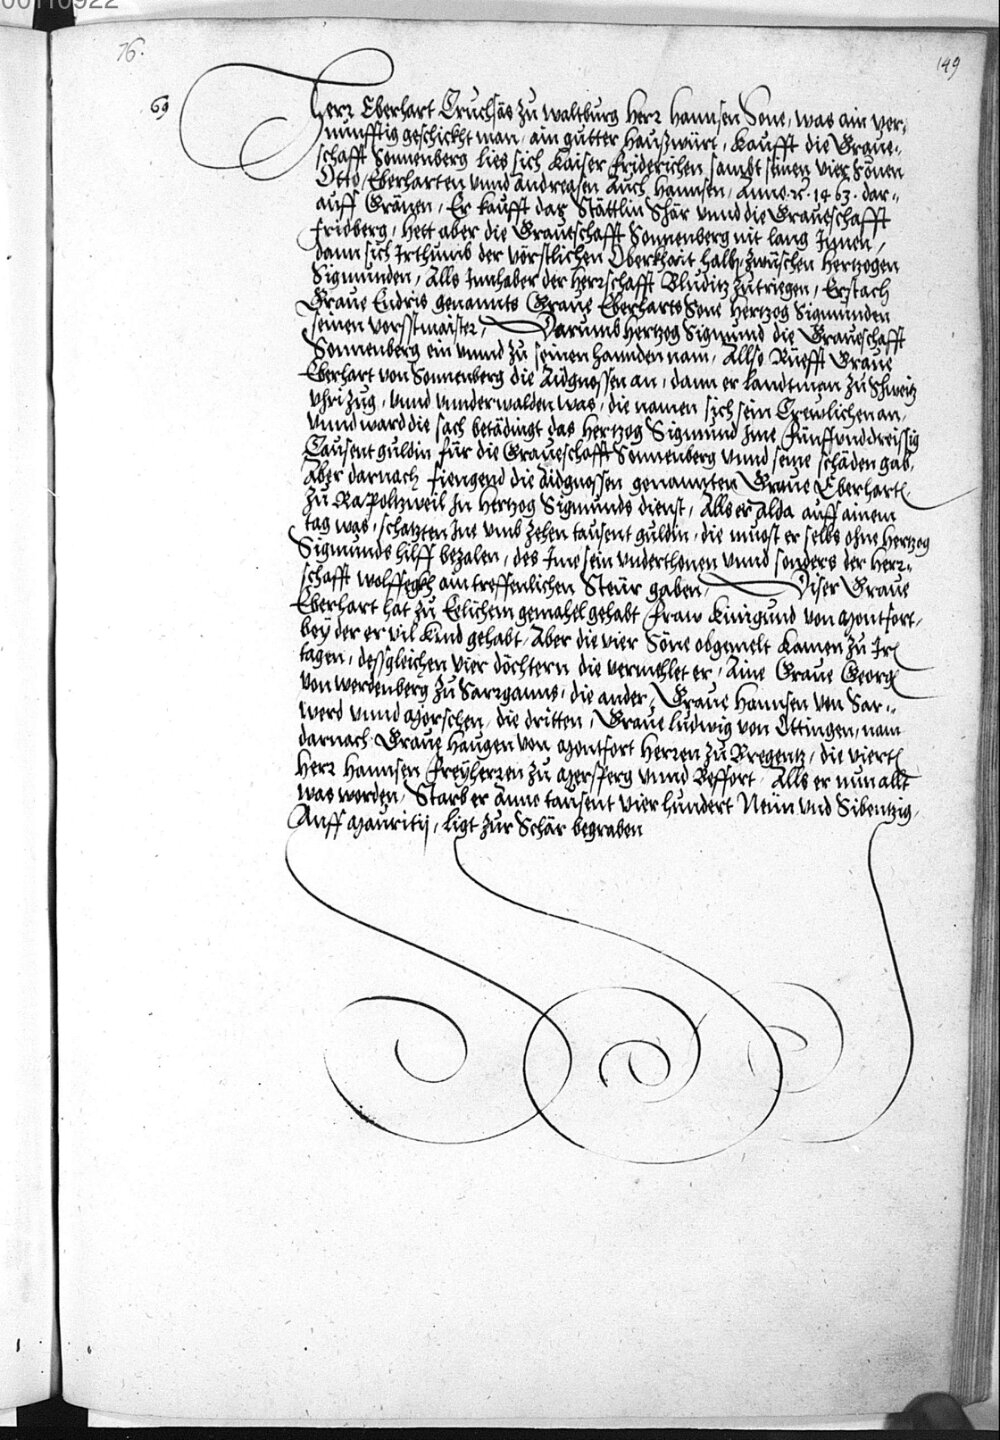 00110922
76.
149
69
Herr Eberhart Truchsäs zu Waltburg Herr Hannsen Sone, was ain ver-
nunfftig geschickht man, ain gutter Haußwürt, Kaufft die Graue-
schafft Sonnenberg lies sich Kaiser Friderichen sambt seinen vier Sönen
Otto, Eberharten vnnd Andreasen Auch Hannsen, Anno 1463. dar-
auff Gräuen, Er kaufft daz Stättlin Shär vnnd die Graueschafft
Fridberg, Hett aber die Graueschafft Sonnenberg nit lang Innen,
dann sich Irthumb der vörstlichen Oberkhait halb, zwüschen Hertzogen
Sigmunden, Alls Innhaber der Herrschafft Bluditz zutriegen, Erstach
Graue Endris genannts Graue Eberharts Sone Hertzog Sigmunden
seinen vorstmaister, Darumb Hertzog Sigmund die Graueschafft
Sonnenberg ein vnnd zu seinen Hannden nam, Allso Rüefft Graue
Eberhart von Sonnenberg die Aidgnossen an, dann er Landtman zu Schweitz
Vhri Zug, vnnd vnnderwalden was, die namen sich sein Trewlichen an,
vnnd ward die sach betädingt das Hertzog Sigmund Ime Fünffvnddreissig
Tausent guldin für die Graueschafft Sonnenberg vnnd seine schäden gab,
Aber darnach fiengend die Aidgnossen genannten Graue Eberhart
zu Rapoltzweil In Hertzog Sigmunds dienst, Alls er Alda auff ainem
tag was, schatzten Ine vmb zehen tausent guldin, die muost er selbs ohne Hertzog
Sigmunds hilff bezalen, des Ime sein vnderthonen vnnd sonders der Herr-
schafft Wolffegkh ain treffenlichen Steür gaben, Diser Graue
Eberhart hat zu Eelichem gemahel gehabt Fraw Kinigund von Montfort,
bey der er vil Kind gehabt, Aber die vier Söne obgemelt Kamen zu Irn
tagen, dessgleichen vier döchtern die vermehlet er, Aine Graue Georg
von Werdenberg zu Sarrganns, die ander, Graue Hannsen von Sar-
werd vnnd Mörschen, die dritten, Graue Ludwig von Ottingen, nam
darnach Graue Haugen von Montfort Herren zu Bregentz, die viert
Herr Hannsen Freyherren zu Mersperg vnnd Beffort, Alls er nun allt
was worden, Starb er Anno tausent vier hundert Neün vnd Sibentzig,
Auff Mauritij, ligt zur Schär begraben